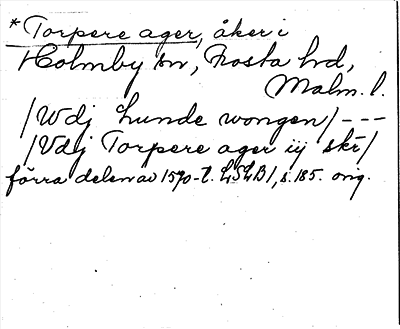 *Torpere ager, åker i
Holmby sn, Frosta hd,
Malm. l.
/Udj Lunde wongen/---
/Udj Torpere ager iij skr/
förra delen av 1570-t. LSLB1, s. 185. orig.